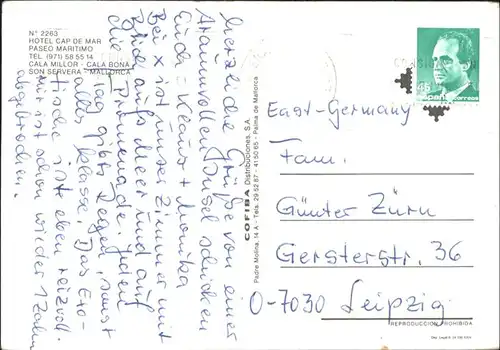 N° 2263
HOTEL CAP DE MAR
PASEO MARITIMO
TEL (971) 58 55 14
CALA MILLOR - CALA BONA
SON SERVERA - MALLORCA
Herzliche Grüße von einer
traumvollen Insel schicken
Euch Klaus + Monika
Bei x ist unser Zimmer mit
Blick auf Meer und auf
die Promenade. Jeden
Tag gibts Regen, sonst
alles klasse. Das Exo-
tische ist eben reizvoll.
Mir ist schon wieder 1 Zahn
abgebrochen.
COFIBA Distribuciones, S.A.
Padre Molina, 14 A - Tels. 29 52 87 - 41 50 65 - Palma de Mallorca
correos
East-Germany
Fam.
Günter Zürn
Gersterstr. 36
O-7030 Leipzig
REPRODUCCION PROHIBIDA